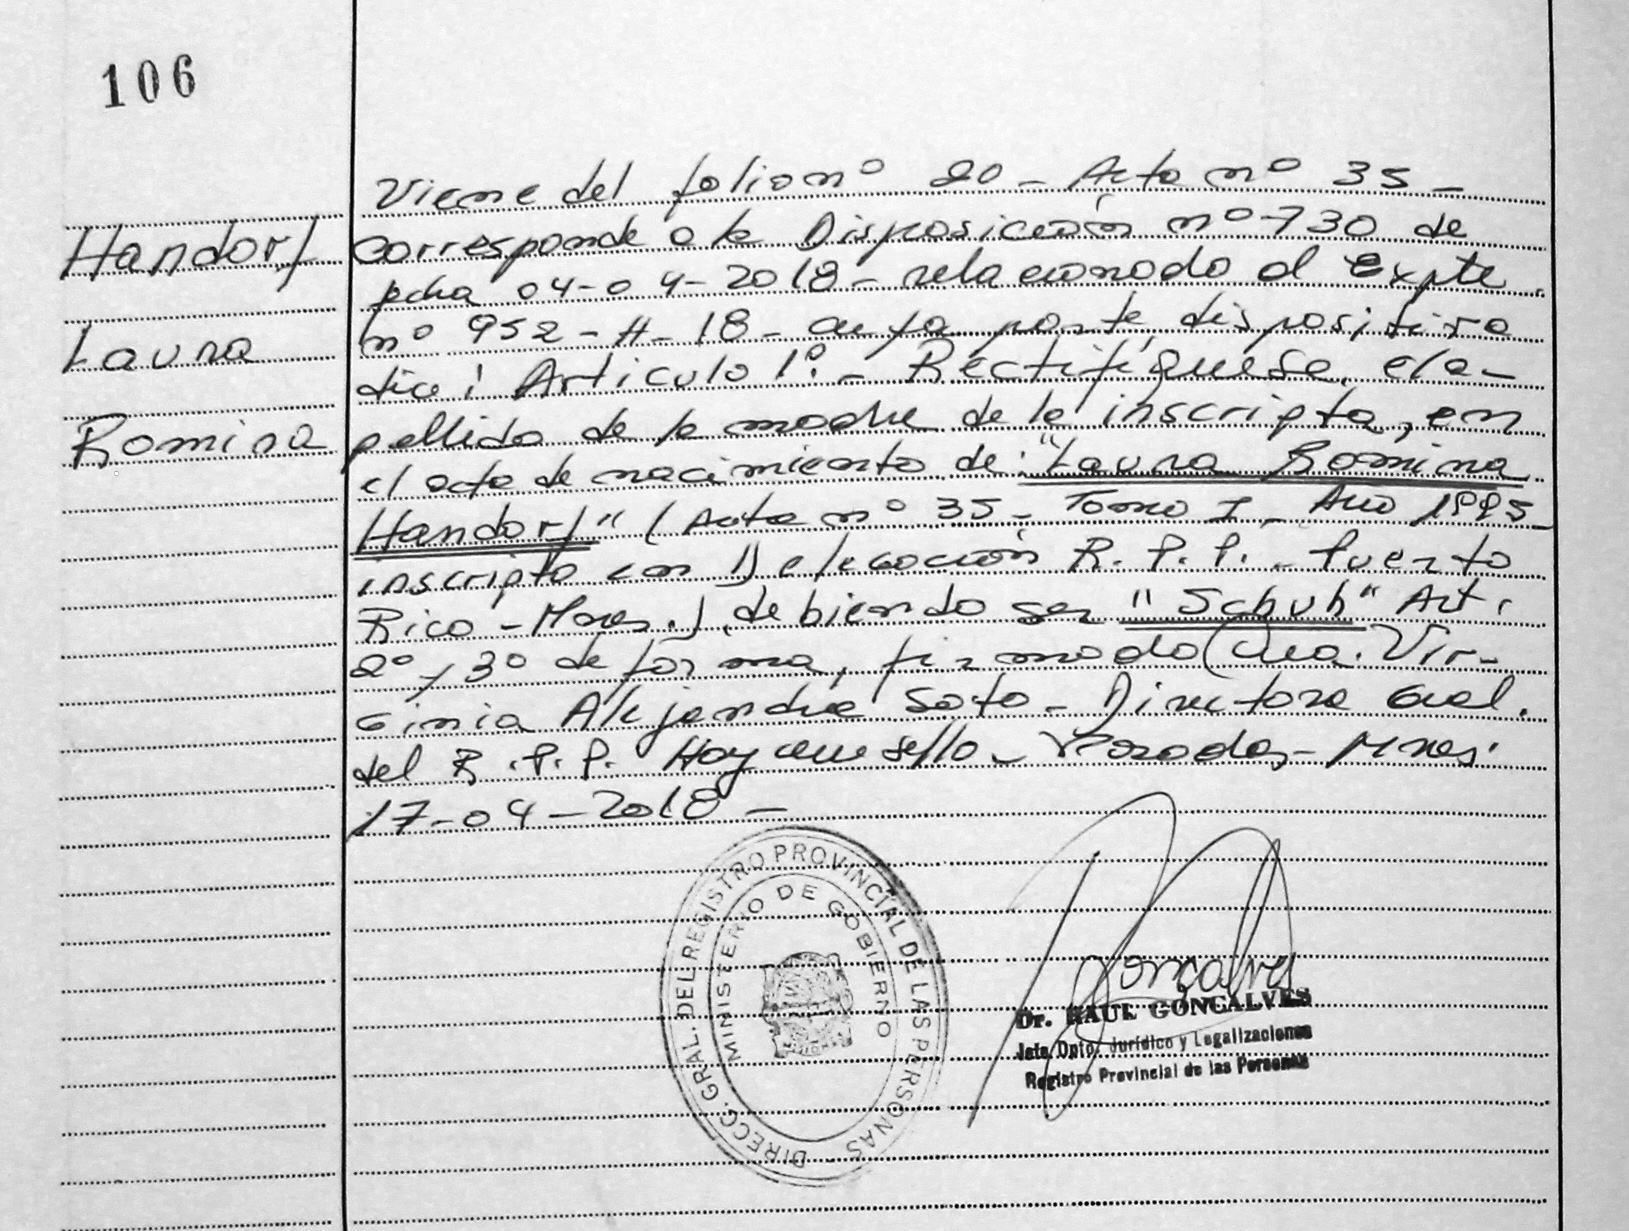 106
Handorf
Laura
Romina
Viene del folio nº 20 - Acta nº 35 -
Corresponde a la Disposición nº 730 de
fecha 04-04-2018 - relacionado al Expte.
nº 952 - H - 18 - cuya parte dispositiva
dice: Artículo 1º.- Rectifíquese, el a-
pellido de la madre de la inscripta, en
el acta de nacimiento de: "Laura Romina
Handorf" (Acta nº 35 - Tomo I - Año 1995
inscripta en Delegación R.P.P. - Puerto
Rico - Mnes.) debiendo ser "Schuh" Art.
2º y 3º de forma, firmado Vir-
ginia Alejandra Soto - Directora Gral.
del R.P.P. Hay un sello - Posadas - Mnes.
17-04-2018 -
DIRECC. GRAL. DEL REGISTRO PROVINCIAL DE LAS PERSONAS
MINISTERIO DE GOBIERNO
Gonçalves
Dr. RAUL GONCALVES
Jefe Dpto. Jurídico y Legalizaciones
Registro Provincial de las Personas